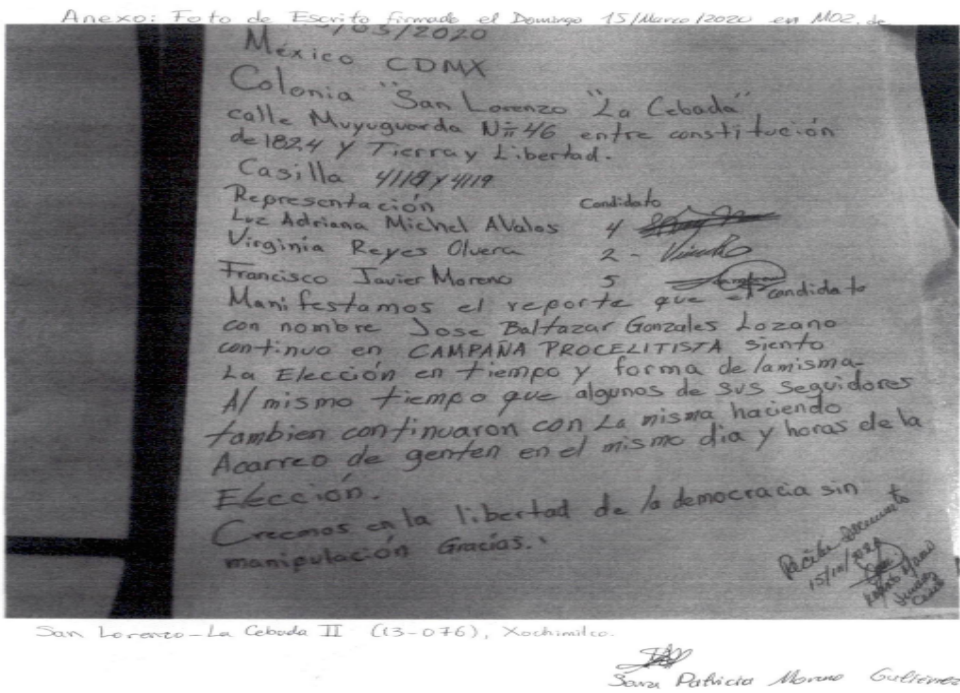 Anexo: Foto de Escrito firmado el Domingo 15/Marzo/2020 en M02, de
/03/2020
México CDMX
Colonia "San Lorenzo "La Cebada"
calle Muyuguarda N 46 entre constitución
de 1824 y Tierra y Libertad.
Casilla 4118 y 4119
Representación Candidato
Luz Adriana Michel Avalos 4
Virginia Reyes Olvera 2 -
Francisco Javier Moreno 5
Manifestamos el reporte que el candidato
con nombre Jose Baltazar Gonzales Lozano
continuo en CAMPAÑA PROCELITISTA siento
La Elección en tiempo y forma de lamisma-
Al mismo tiempo que algunos de sus seguidores
tambien continuaron con La misma haciendo
Acarreo de genten en el mismo dia y horas de la
Elección.
Creemos en la libertad de la democracia sin
manipulación Gracias.
Recibo Documento
San Lorenzo-La Cebada II (13-076), Xochimilco.
Sara Patricia Moreno Gutiérrez